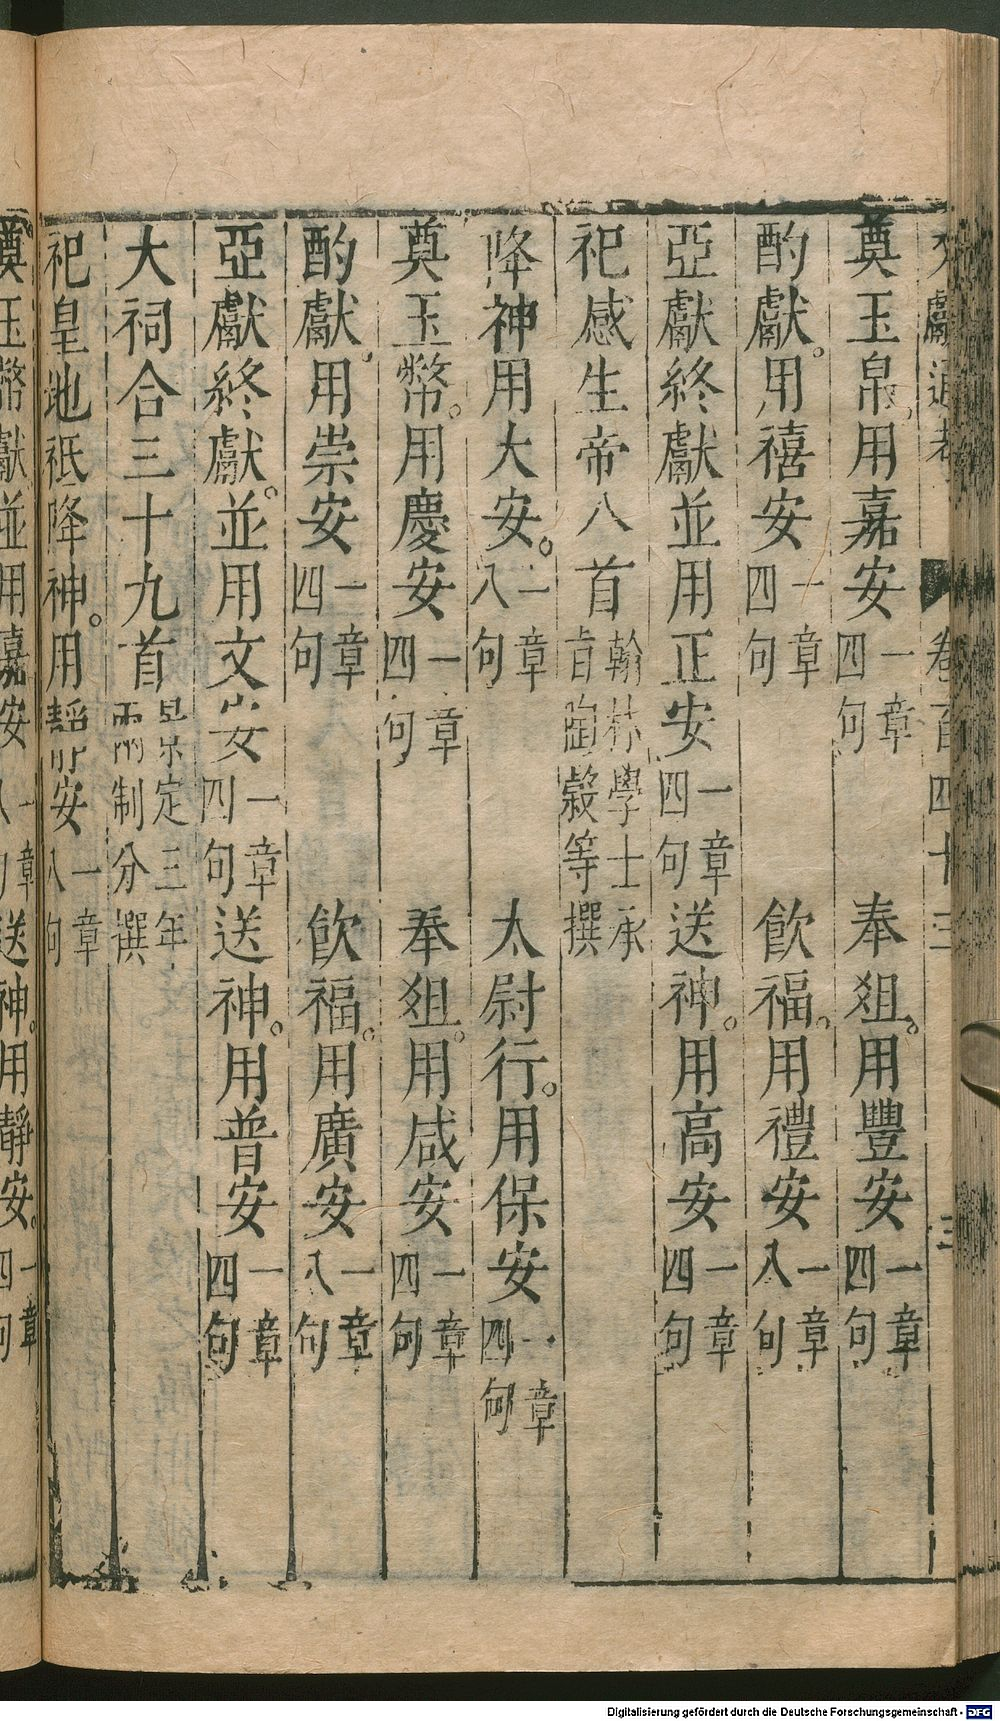 文獻通考 卷百四十三 三
奠玉帛。用嘉安一章四句 奉俎。用豐安一章四句
酌獻。用禧安一章四句 飲福。用禮安一章八句
亞獻終獻並用正安一章四句 送神。用高安一章四句
祀感生帝八首翰林學士承旨陶穀等撰
降神用大安。一章八句 太尉行。用保安一章四句
奠玉幣。用慶安一章四句 奉俎。用咸安一章四句
酌獻。用崇安一章四句 飲福。用廣安一章八句
亞獻終獻。並用文安一章四句 送神。用普安一章四句
大祠合三十九首景定三年兩制分撰
祀皇地祇降神。用靜安一章八句
奠玉幣獻並用嘉安一章八句 送神。用靜安。一章四句
Digitalisierung gefördert durch die Deutsche Forschungsgemeinschaft - DFG